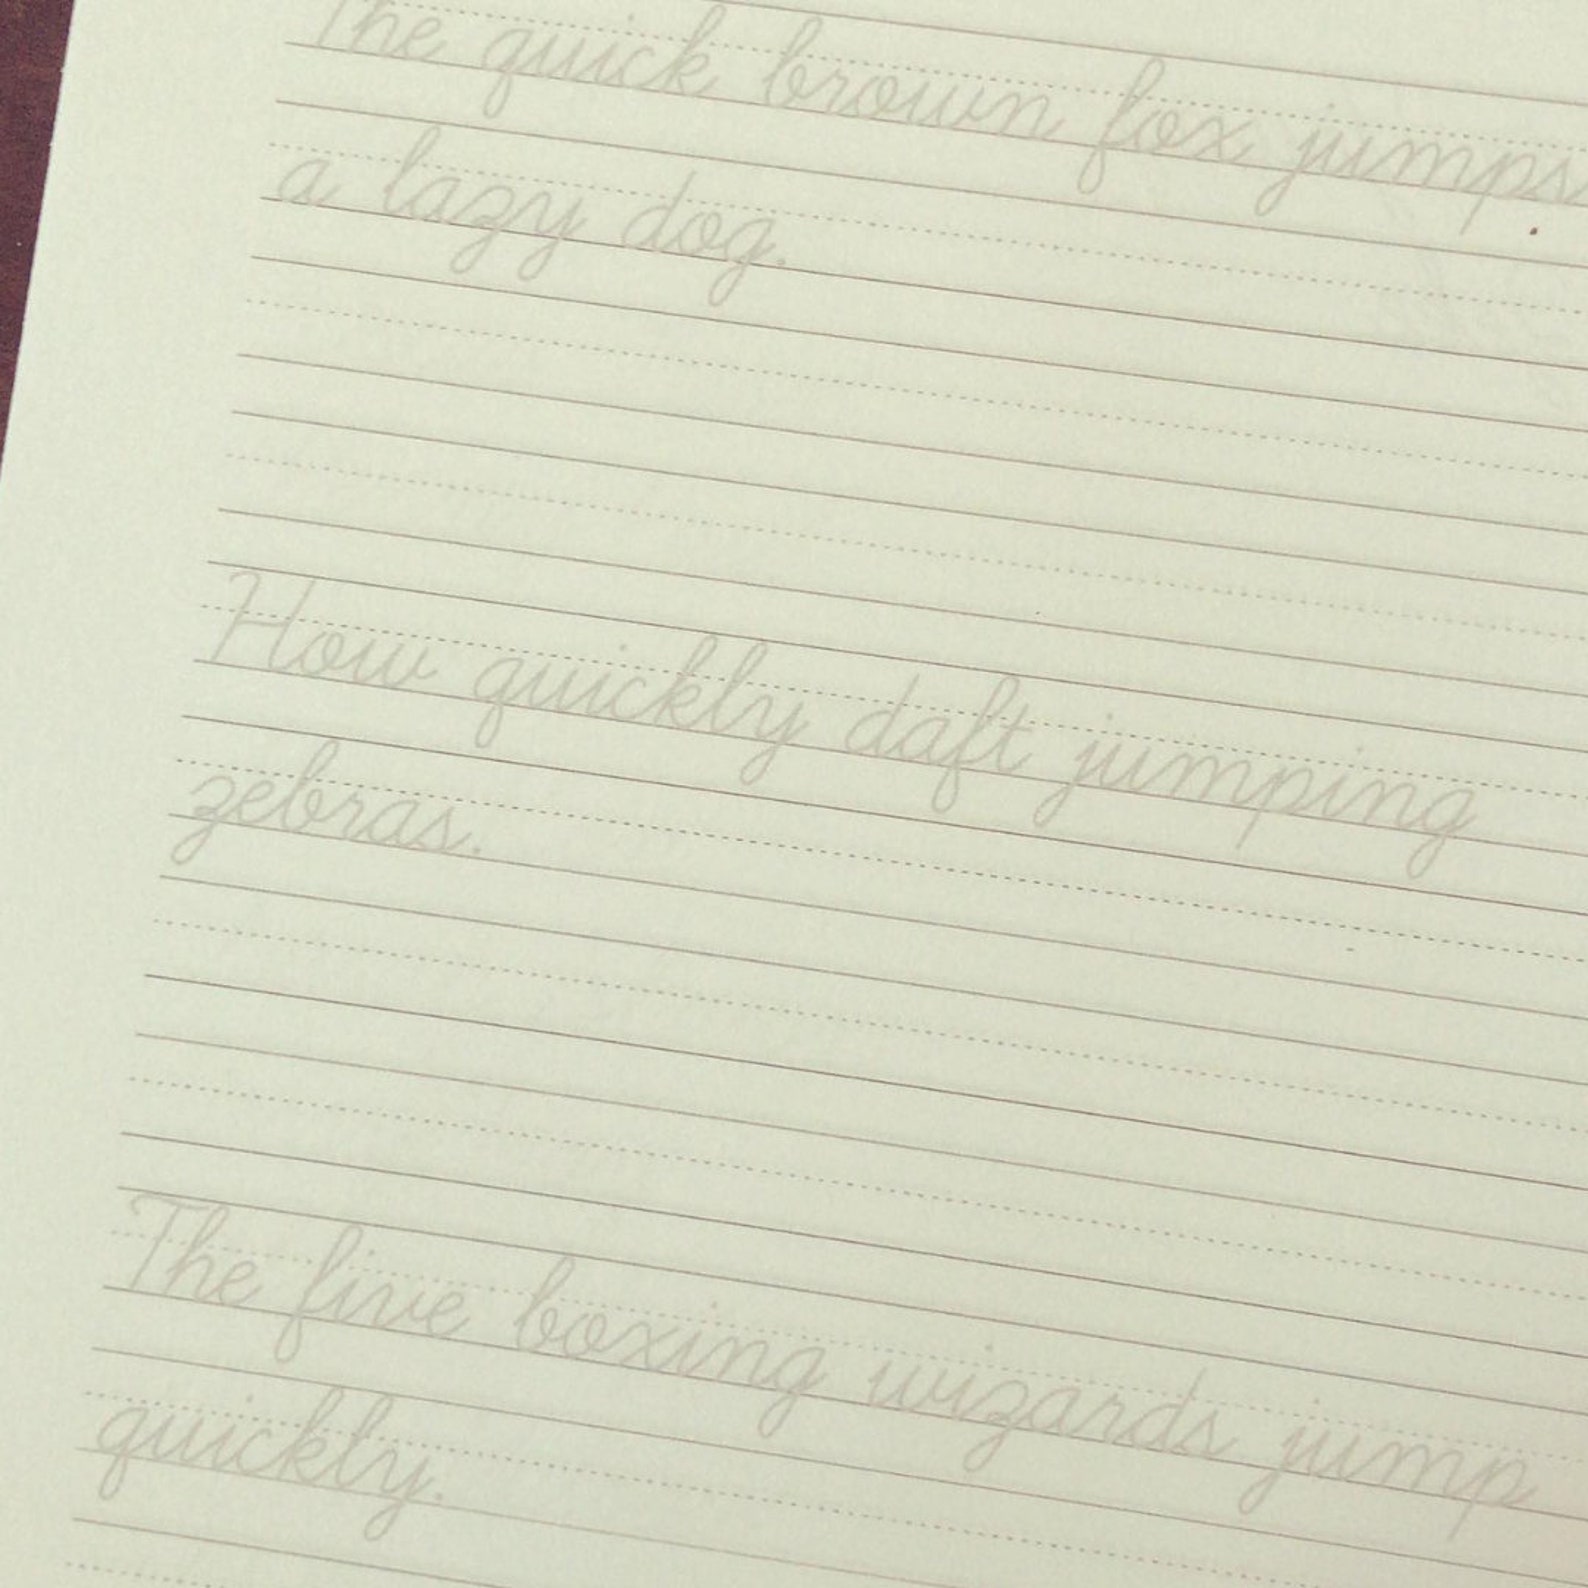 The quick brown fox jumps
a lazy dog.
How quickly daft jumping
zebras.
The five boxing wizards jump
quickly.